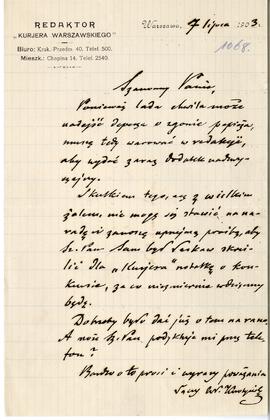 REDAKTOR
„KURJERA WARSZAWSKIEGO"
BIURO: Krak.-Przedm. 40, Telef. 500.
MIESZK.: Chopina 14, Telef. 2540.
Warszawa, 7 lipca 1903.
1068.
Szanowny Panie,
Ponieważ lada chwila może
nadejść depesza o zgonie papieża,
muszę tedy warować w redakcji,
aby wydać zaraz dodatek nadzwy-
czajny.
Skutkiem tego, z wielkim
żalem, nie mogę się stawić na na-
radę i zanoszę uprzejmą prośbę, aby
Sz. Pan sam był łaskaw skreś-
lić dla „Kurjera" notatkę o kon-
kursie, za co niezmiernie wdzięczny
będę.
Dobrze by było dać już o tem na rano.
A może Sz. Pan podyktuje mi przez tele-
fon?
Bardzo o to prosi i wyrazy poważania
łączy